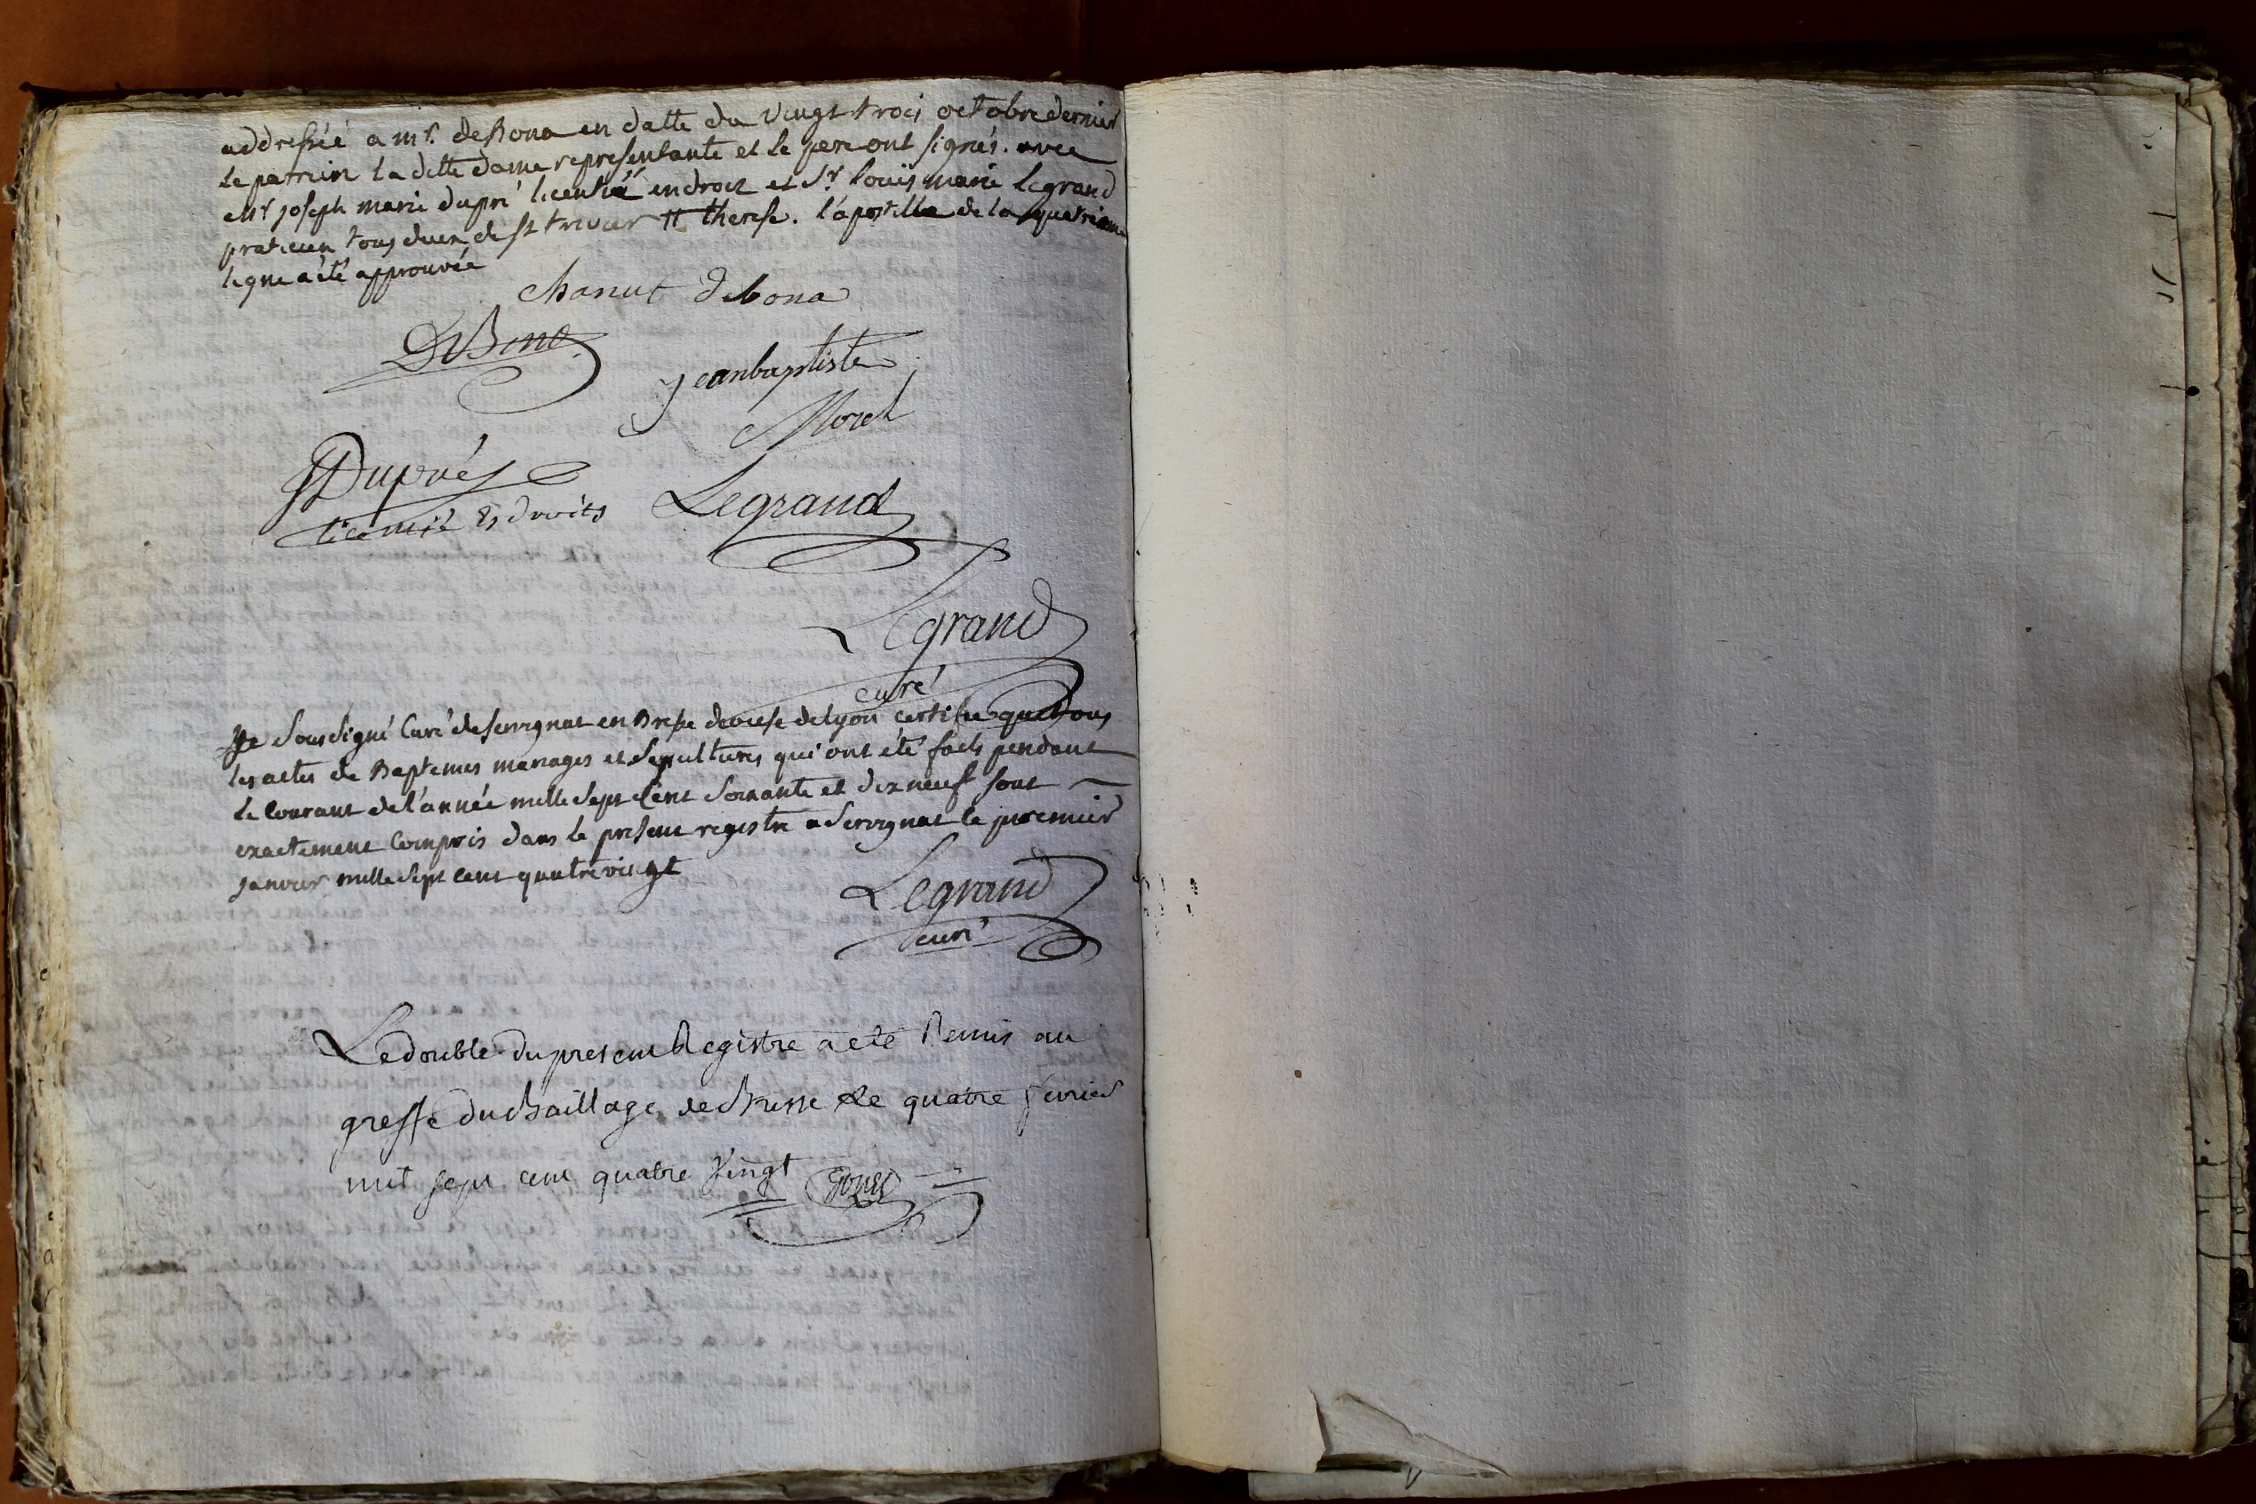 addressée a mr. deBona en datte du vingt trois octobre dernier
le parrein la ditte dame representante et le pere ont signés. avec
Mr joseph marie dupré licentié en droit et Sr loüis marie legrand
praticien tous deux de st trivier # therese. l'apostille de la quatrieme
ligne a été approuvée
chanut debona
DeBona
jeanbaptiste
Morel
Duprés
licentié Es droits
Legrand
Legrand
curé
Je Soussigné Curé de servignat en Bresse diocese de lyon certifie que tous
les actes de Baptemes mariages et sepultures qui ont été faits pendant
le Courant de l'année mille Sept Cent Soixante et dix neuf sont
exactement Compris dans le present registre a Servignat le premier
janvier mille Sept Cent quatre vingt
Legrand
curé
Le double du present Registre a eté Remis au
greffe du Baillage de Bresse le quatre fevrier
mil sept cent quatre vingt